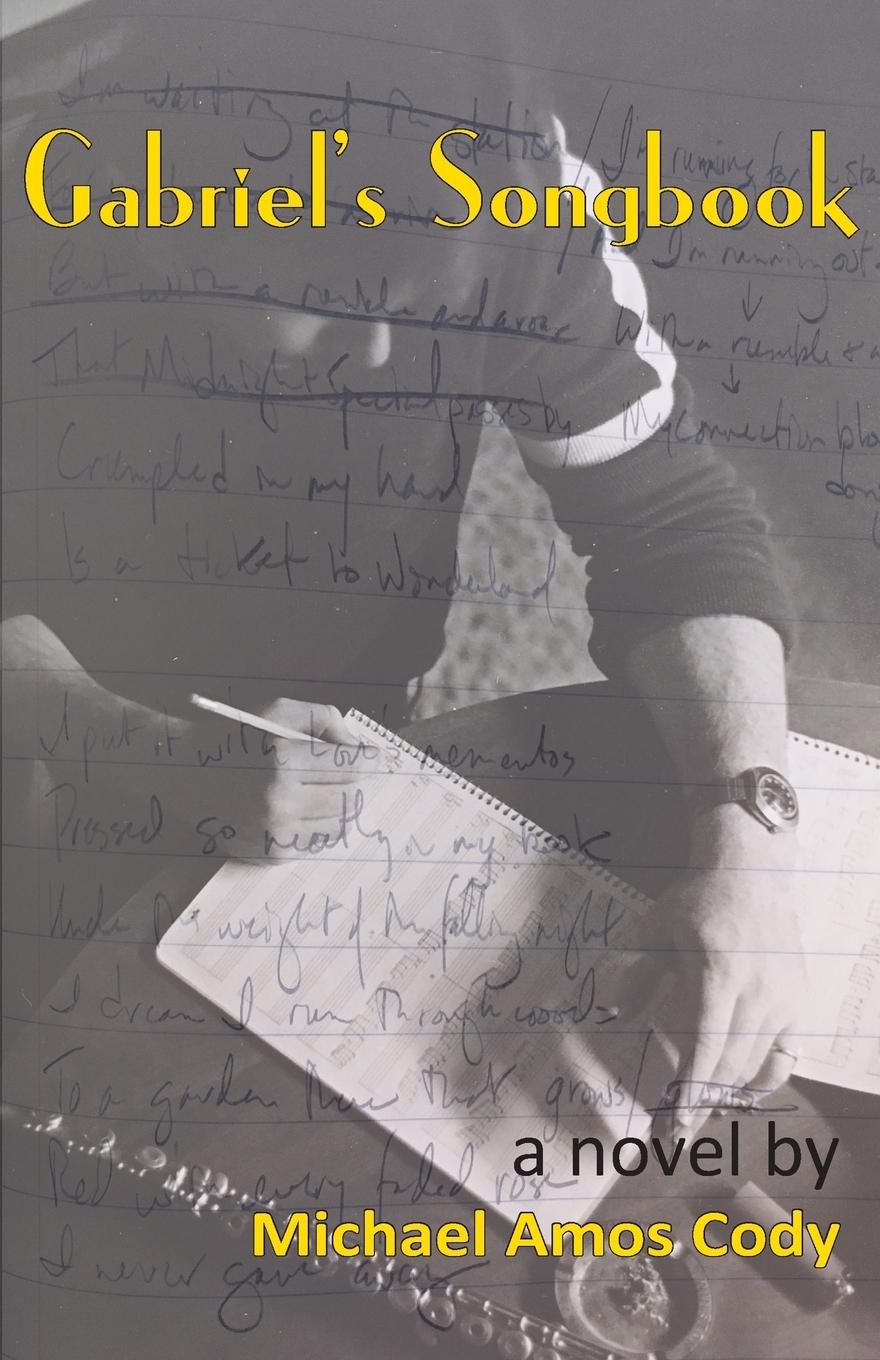 I'm waiting at the station / I'm running for the sta
Gabriel's Songbook
I'm running out
But with a rumble and a roar With a rumble & a
That Midnight Special passes by My connection blo
Crumpled in my hand don
Is a ticket to Wonderland
I put it with Love's mementos
Pressed so neatly in my book
Under the weight of the falling night
I dream I run through woods
To a garden there that grows / glows
a novel by
Red with every faded rose
Michael Amos Cody
I never gave away